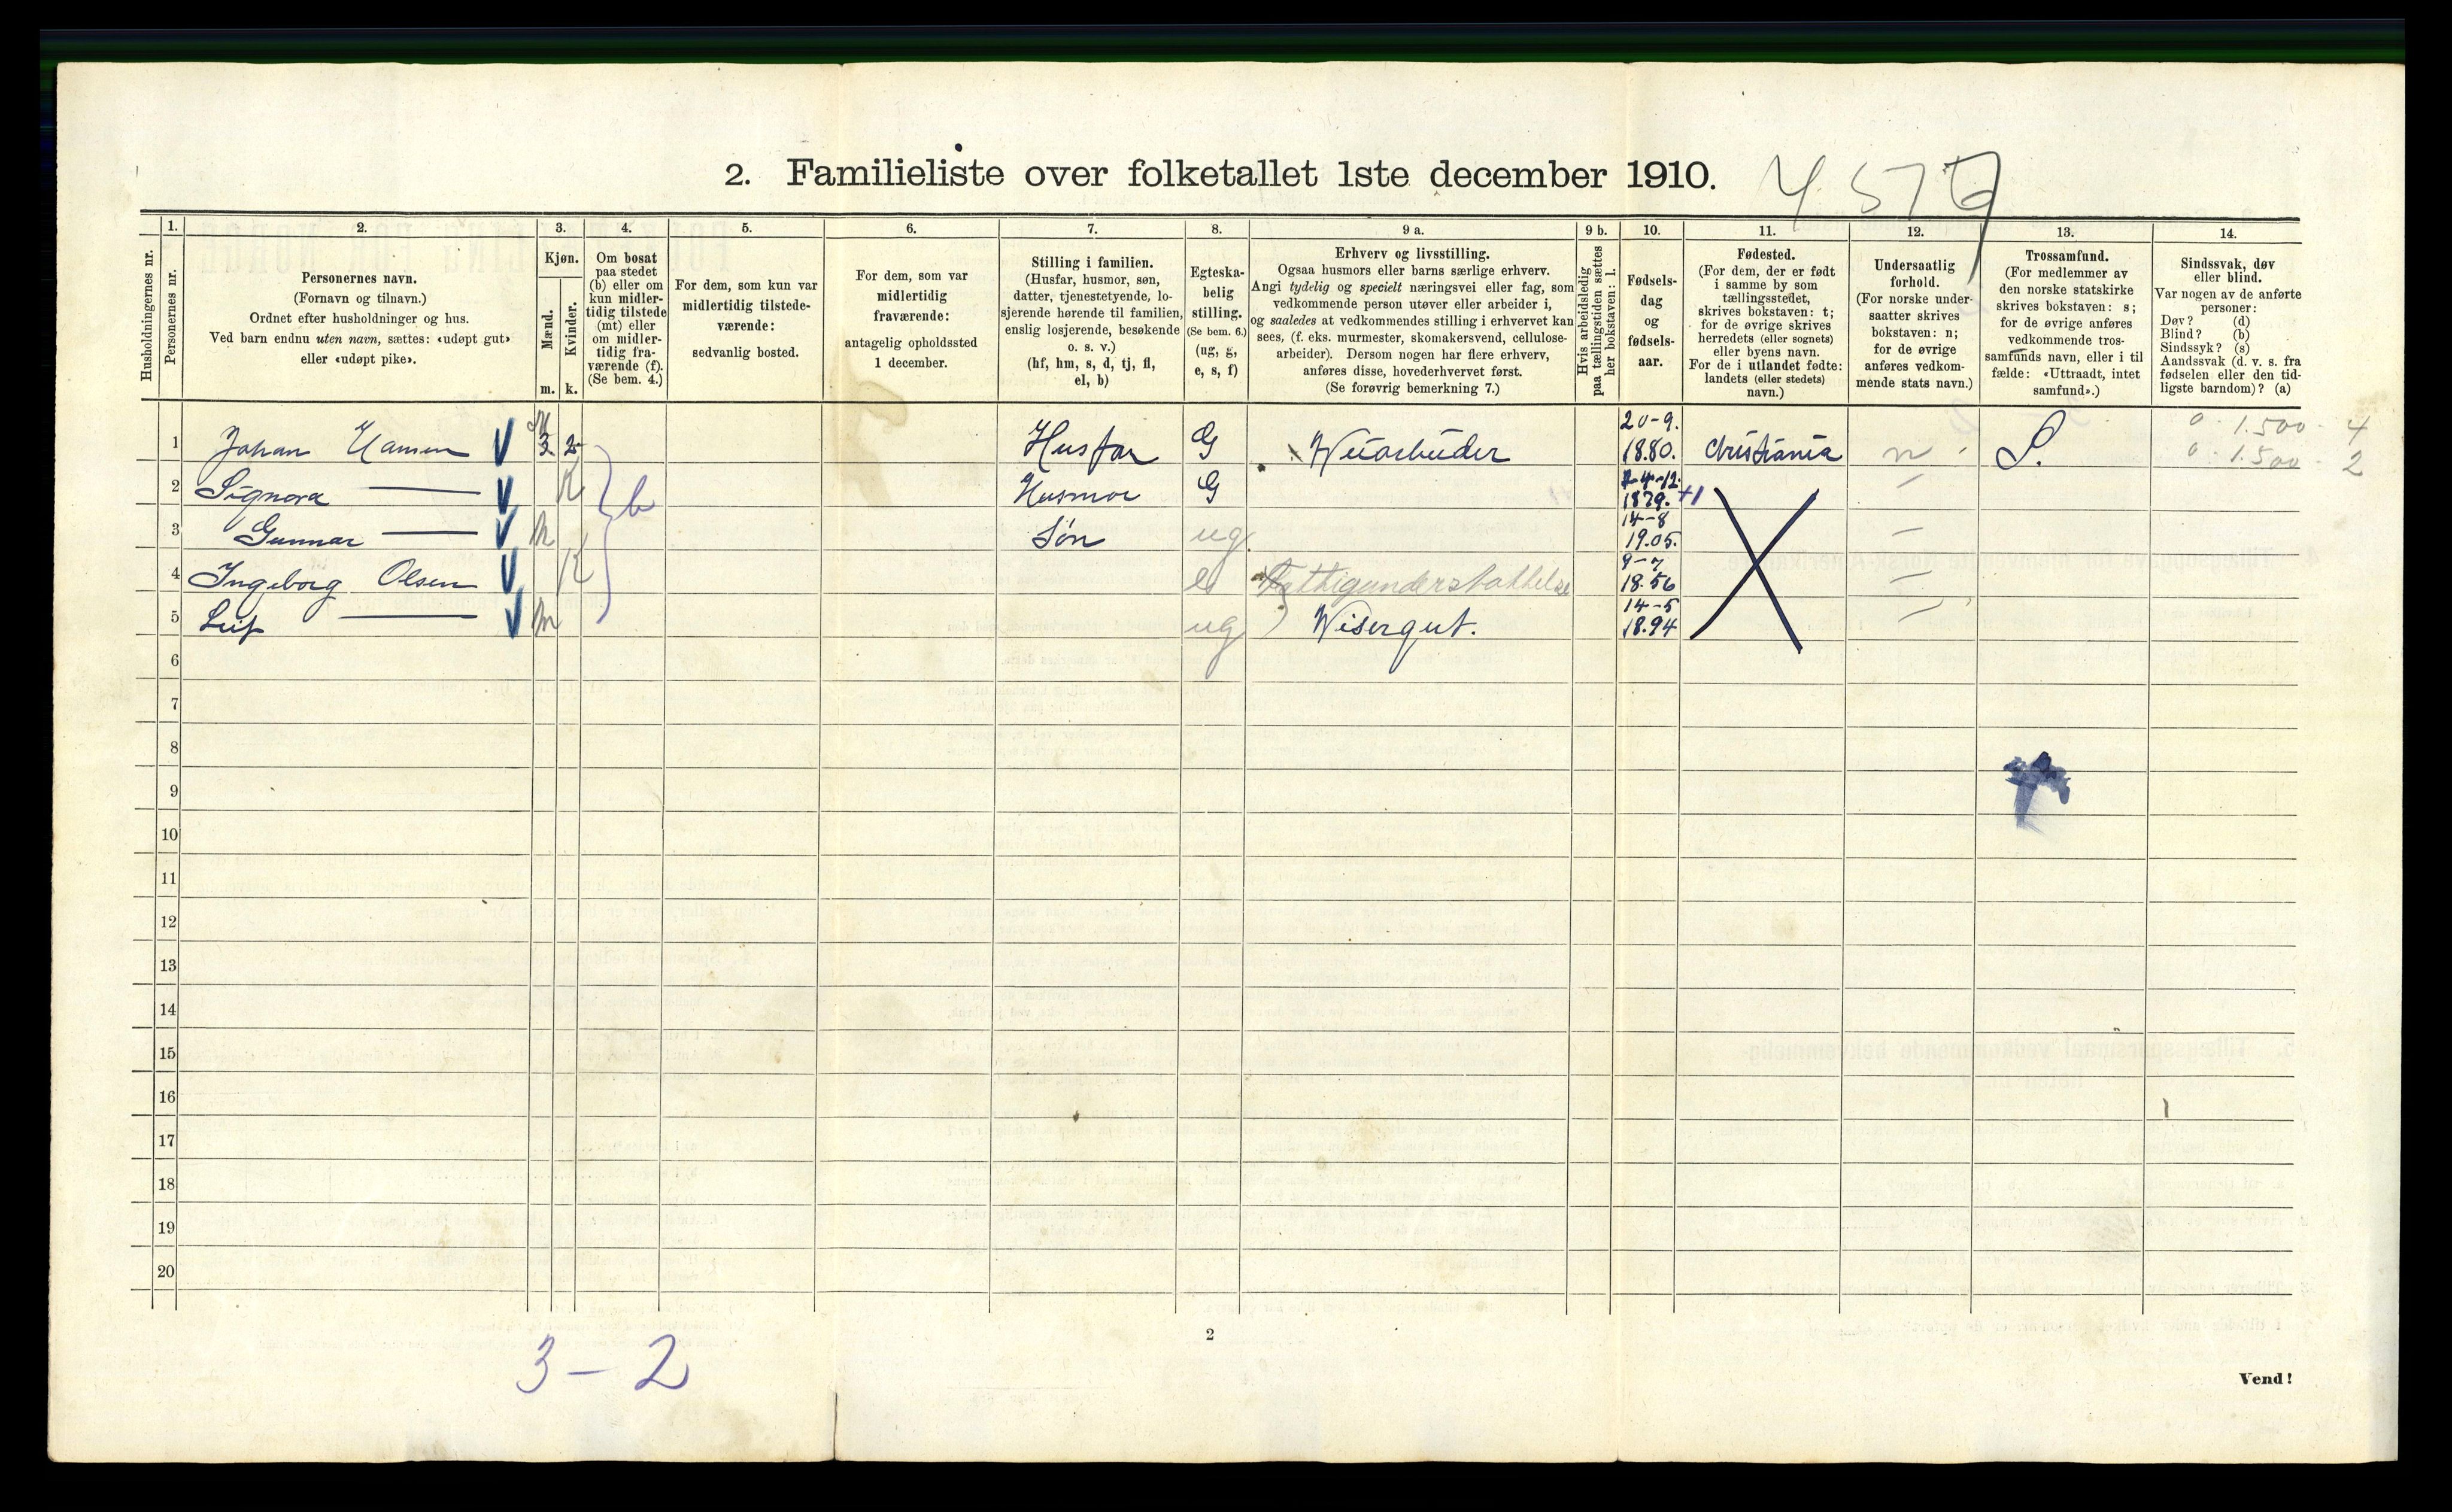 2. Familieliste over folketallet 1ste december 1910.
Husholdningernes nr.
1. Personernes nr.
2. Personernes navn.
(Fornavn og tilnavn.)
Ordnet efter husholdninger og hus.
Ved barn endnu uten navn, sættes: «udøpt gut»
eller «udøpt pike».
3. Kjøn.
Mænd. m.
Kvinder. k.
4. Om bosat
paa stedet
(b) eller om
kun midler-
tidig tilstede
(mt) eller
om midler-
tidig fra-
værende (f).
(Se bem. 4.)
5. For dem, som kun var
midlertidig tilstede-
værende:
sedvanlig bosted.
6. For dem, som var
midlertidig
fraværende:
antagelig opholdssted
1 december.
7. Stilling i familien.
(Husfar, husmor, søn,
datter, tjenestetyende, lo-
sjerende hørende til familien,
enslig losjerende, besøkende
o. s. v.)
(hf, hm, s, d, tj, fl,
el, b)
8. Egteska-
belig
stilling.
(Se bem. 6.)
(ug, g,
e, s, f)
9 a. Erhverv og livsstilling.
Ogsaa husmors eller barns særlige erhverv.
Angi tydelig og specielt næringsvei eller fag, som
vedkommende person utøver eller arbeider i,
og saaledes at vedkommendes stilling i erhvervet kan
sees, (f. eks. murmester, skomakersvend, cellulose-
arbeider). Dersom nogen har flere erhverv,
anføres disse, hovederhvervet først.
(Se forøvrig bemerkning 7.)
9 b. Hvis arbeidsledig
paa tællingstiden sættes
her bokstaven: l.
10. Fødsels-
dag
og
fødsels-
aar.
11. Fødested.
(For dem, der er født
i samme by som
tællingsstedet,
skrives bokstaven: t;
for de øvrige skrives
herredets (eller sognets)
eller byens navn.
For de i utlandet fødte:
landets (eller stedets)
navn.)
12. Undersaatlig
forhold.
(For norske under-
saatter skrives
bokstaven: n;
for de øvrige
anføres vedkom-
mende stats navn.)
13. Trossamfund.
(For medlemmer av
den norske statskirke
skrives bokstaven: s;
for de øvrige anføres
vedkommende tros-
samfunds navn, eller i til
fælde: «Uttraadt, intet
samfund».)
14. Sindssvak, døv
eller blind.
Var nogen av de anførte
personer:
Døv? (d)
Blind? (b)
Sindssyk? (s)
Aandssvak (d. v. s. fra
fødselen eller den tid-
ligste barndom)? (a)
1 Johan Hansen 3 2 Husfar G 20-9. 1880. Christiania n S. 0 - 1.500 - 4
0 - 1.500 - 2
2 Signora — K b Husmor G 1879. +1
3 Gunnar — m Søn ug 14-8 1905.
4 Ingeborg Olsen K e Fattigunderstøttelse 9-7 18.56
5 Leif — m ug Visergut. 14-5 18.94
6
7
8
9
10
11
12
13
14
15
16
17
18
19
20
3 - 2
2
Vend!